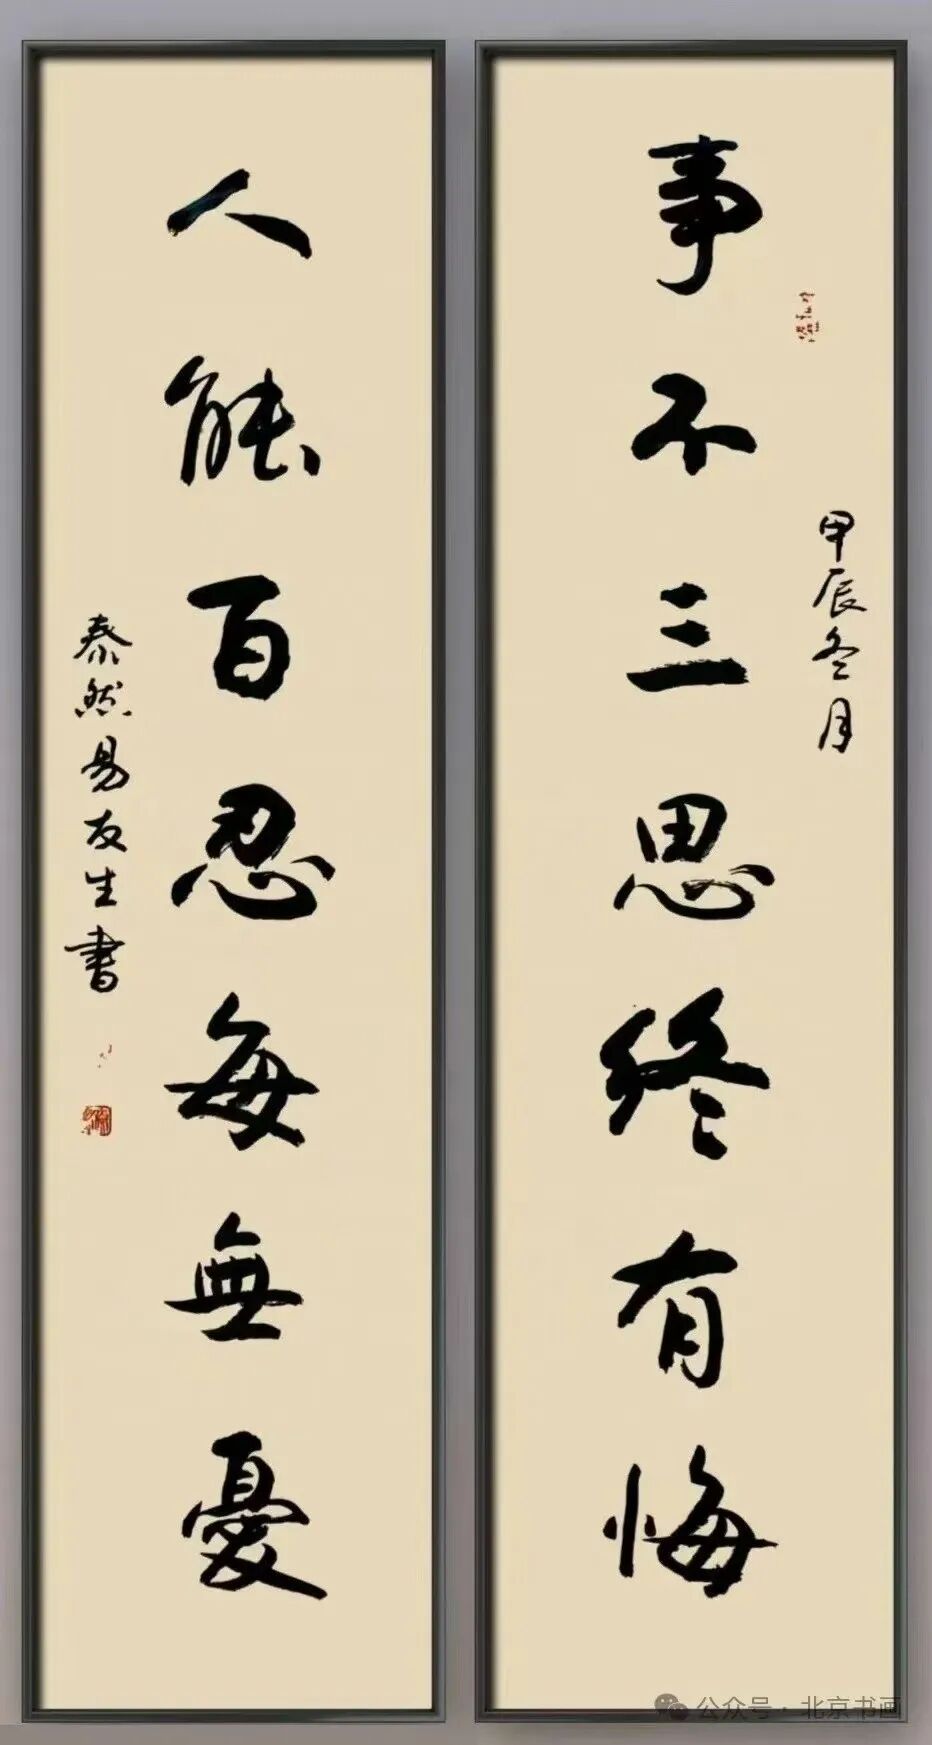 事不三思终有悔
甲辰冬月
人能百忍每無憂
泰然易友生書
公众号·北京书画